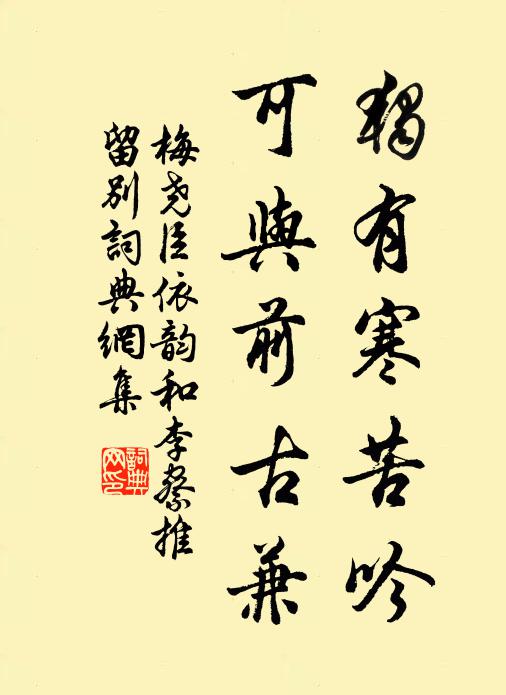 獨有寒苦吟
可與前古兼
梅尧臣依韵和李察推
留别詞典網集
詞典网印